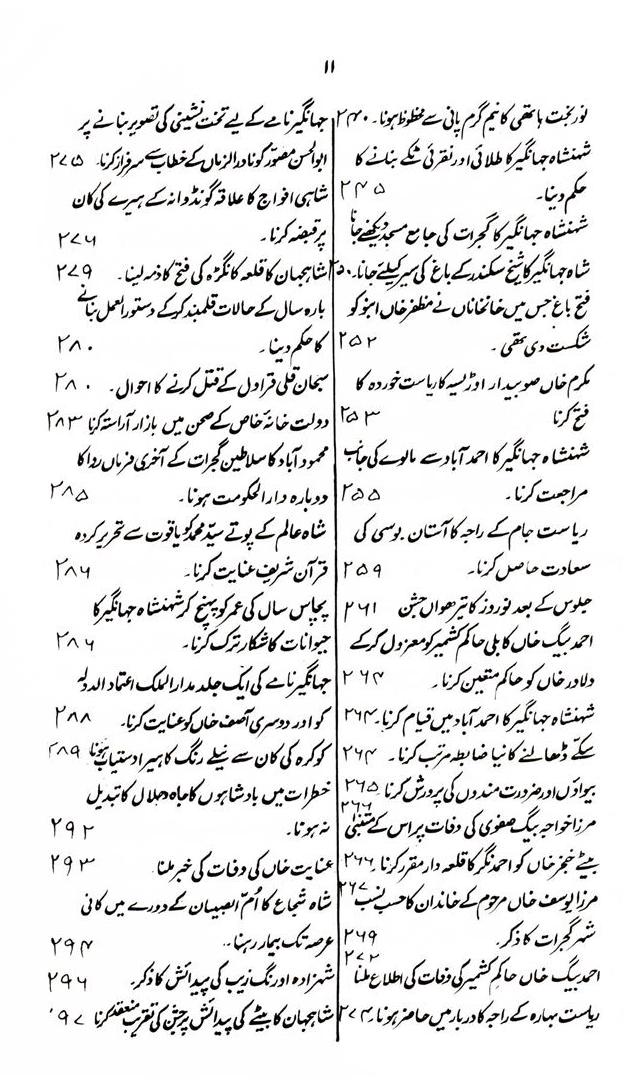 ۱۱
نور بخت ہاتھی کا نیم گرم پانی سے محظوظ ہونا۔ ۲۴۰
شہنشاہ جہانگیر کا طلائی اور نقرئی ٹکے بنانے کا
حکم دینا۔ ۲۴۵
شہنشاہ جہانگیر کا گجرات کی جامع مسجد دیکھنے جانا
شاہ جہانگیر کا شیخ سکندر کے باغ کی سیر کیلئے جانا۔ ۲۵۰
فتح باغ جس میں خانخاناں نے مظفر خاں انبو کو
شکست دی تھی۔ ۲۵۲
مکرم خاں صوبیدار اوڑیسہ کا ریاست خوردہ کا
فتح کرنا ۲۵۳
شہنشاہ جہانگیر کا احمد آباد سے مالوے کی جانب
مراجعت کرنا۔ ۲۵۵
ریاست جام کے راجہ کا آستان بوسی کی
سعادت حاصل کرنا۔ ۲۵۹
جلوس کے بعد نوروز کا تیرھواں جشن ۲۶۱
احمد بیگ خاں کابلی حاکم کشمیر کو معزول کر کے
دلاور خاں کو حاکم متعین کرنا۔ ۲۶۴
شہنشاہ جہانگیر کا احمد آباد میں قیام کرنا۔ ۲۶۴
سکے ڈھالنے کا نیا ضابطہ مرتب کرنا۔ ۲۶۴
بیواؤں اور ضرورت مندوں کی پرورش کرنا ۲۶۵
مرزا خواجہ بیگ صفوی کی وفات پر اس کے متبنیٰ ۲۶۶
بیٹے خنجر خاں کو احمد نگر کا قلعہ دار مقرر کرنا۔ ۲۶۶
مرزا یوسف خاں مرحوم کے خاندان کا حسب نسب ۲۶۷
شہر گجرات کا ذکر۔ ۲۶۹
احمد بیگ خاں حاکم کشمیر کی وفات کی اطلاع ملنا ۲۷۲
ریاست بہارہ کے راجہ کا دربار میں حاضر ہونا۔ ۲۷۴
جہانگیر نامے کے لیے تخت نشینی کی تصویر بنانے پر
ابوالحسن مصور کو نادر الزماں کے خطاب سے سرفراز کرنا۔ ۲۷۵
شاہی افواج کا علاقہ گونڈوانہ کے ہیرے کی کان
پر قبضہ کرنا۔ ۲۷۶
شاہجہان کا قلعہ کانگڑہ کی فتح کا ذمہ لینا۔ ۲۷۹
بارہ سال کے حالات قلمبند کر کے دستور العمل بنانے
کا حکم دینا۔ ۲۸۰
سبحان قلی قراول کے قتل کرنے کا احوال۔ ۲۸۰
دولت خانہ خاص کے صحن میں بازار آراستہ کرنا ۲۸۳
محمود آباد کا سلاطین گجرات کے آخری فرماں روا کا
دوبارہ دارالحکومت ہونا۔ ۲۸۵
شاہ عالم کے پوتے سید محمد کو یاقوت سے تحریر کردہ
قرآن شریف عنایت کرنا۔ ۲۸۶
پچاس سال کی عمر کو پہنچ کر شہنشاہ جہانگیر کا
حیوانات کا شکار ترک کرنا۔ ۲۸۶
جہانگیر نامے کی ایک جلد مدار الملک اعتماد الدولہ
کو اور دوسری آصف خاں کو عنایت کرنا۔ ۲۸۸
کوکرہ کی کان سے نیلے رنگ کا ہیرا دستیاب ہونا ۲۸۹
خطرات میں بادشاہوں کا ماہ و ہلال کا تبدیل
نہ ہونا۔ ۲۹۲
عنایت خاں کی وفات کی خبر ملنا ۲۹۳
شاہ شجاع کا اُم الصبیان کے دورے میں کافی
عرصہ تک بیمار رہنا۔ ۲۹۴
شہزادہ اورنگ زیب کی پیدائش کا ذکر۔ ۲۹۶
شاہجہان کا بیٹے کی پیدائش پر جشن کی تقریب منعقد کرنا ۲۹۷